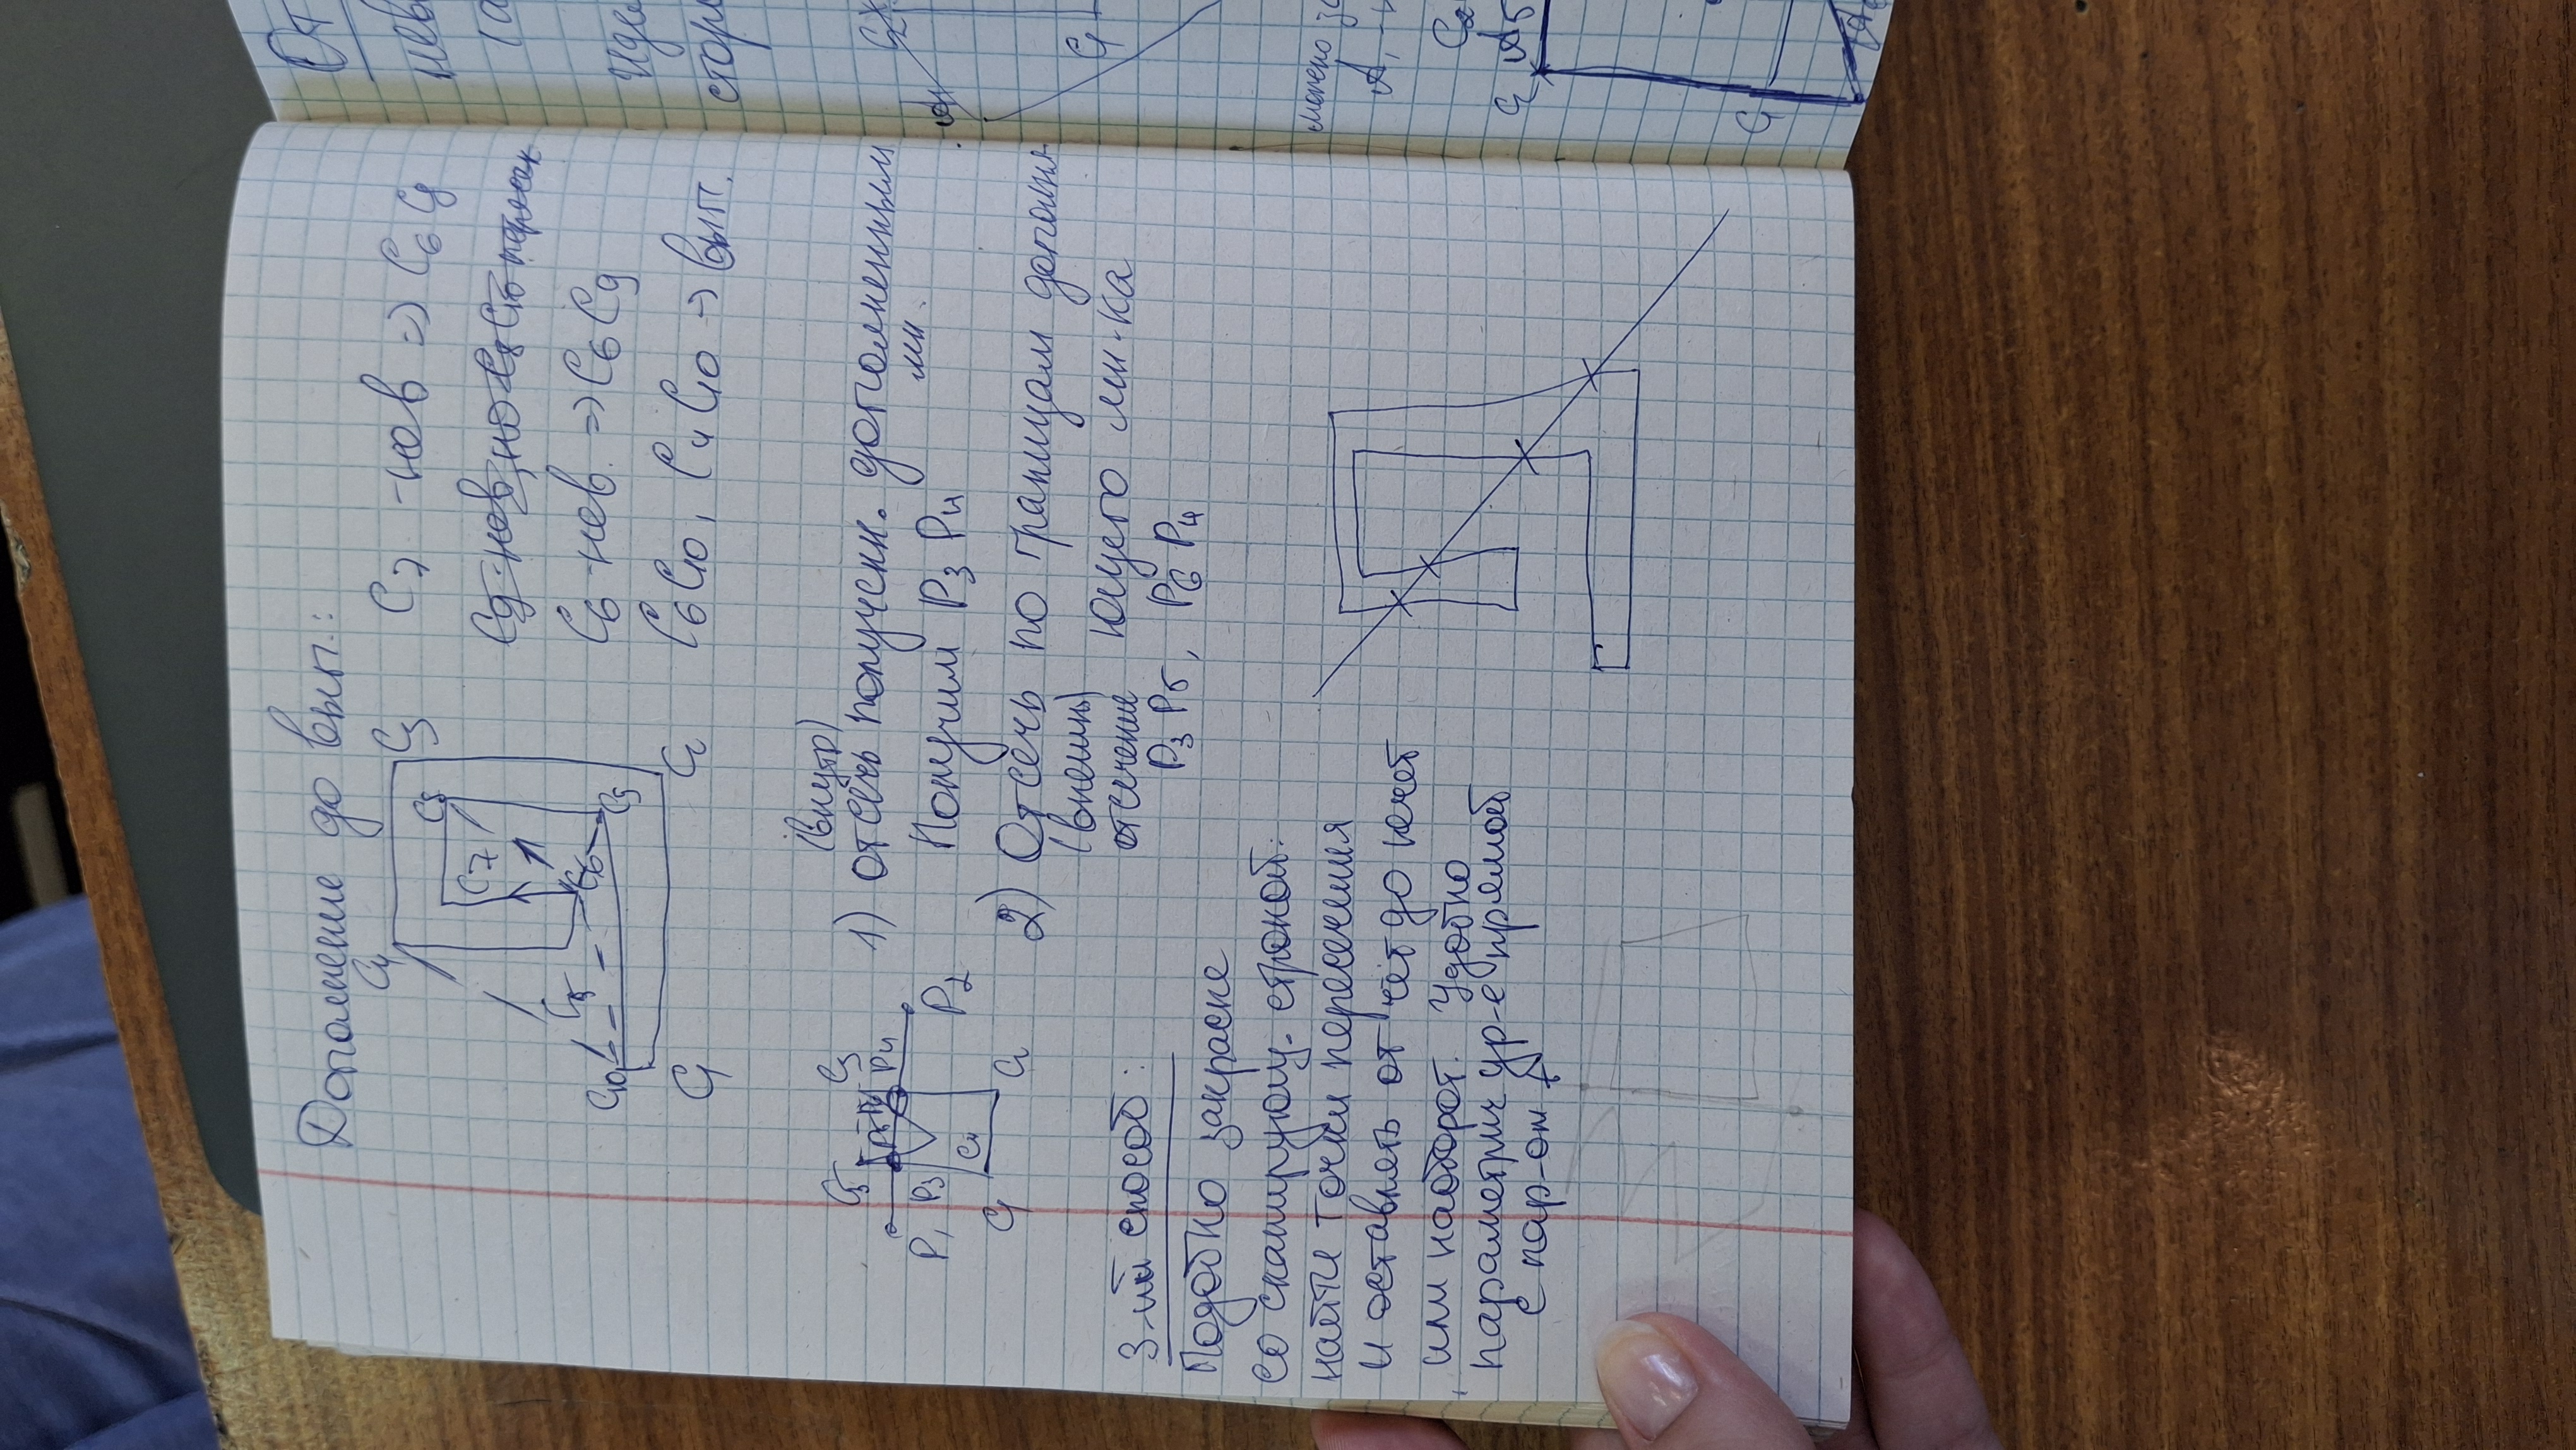 Дополнение до вып.:
C4
C3
C8
C7
C5
C6
C10
C9
C1
C2
C7 - нев => C6 C8
C9 - нев, но C8 C10 пересек
C6 - нев. => C6 C9
C6 C10, C4 C10 -> вып.
C5
C3
P5
P4
P1
P3
P2
C4
C1
C2
(внутр)
1) отсечь получени. дополненным
мн.
Получим P3 P4
2) Отсечь по границам дополня-
(внешнь)
отсечение
ющего мн-ка
P3 P5, P6 P4
3-ий способ:
Подобно закраске
со сканирующ. строкой:
найти точки пересечения
и оставлять от чёт до нечет
или наоборот. Удобно
параметрич ур-е прямой
с пар-ом t
От
нев
иде
сторо
C2
A1
C1
можно за
A1
C2
A5
C1